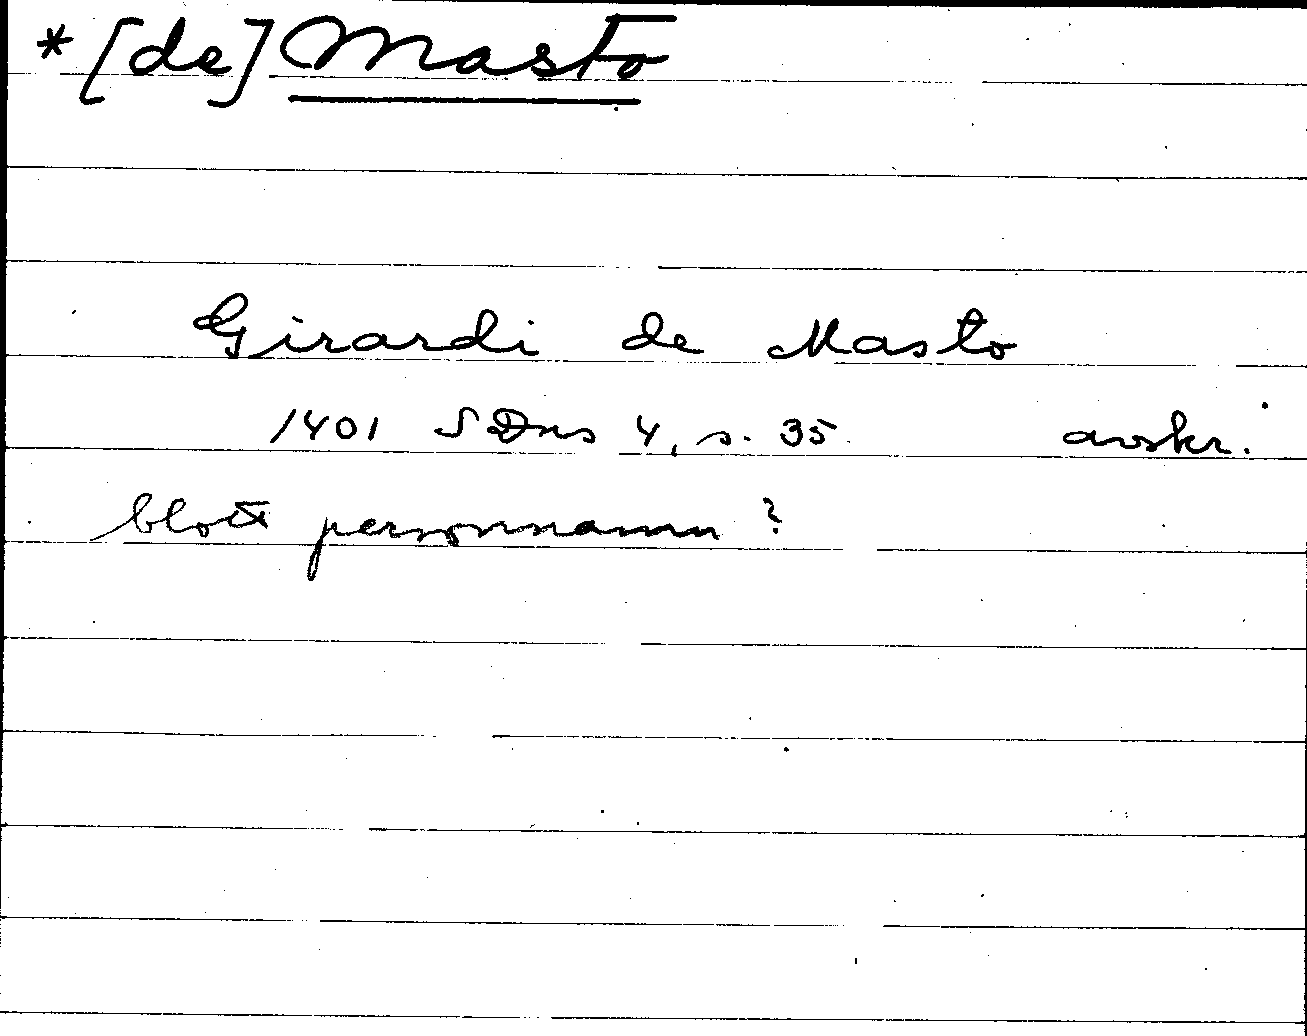 *[de] Masto
Girardi de Masto
1401 SDns 4, s. 35. avskr.
blott personnamn?